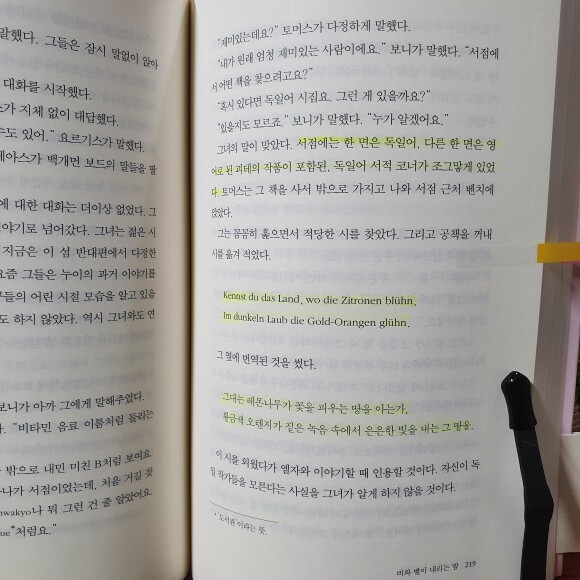 말했다. 그들은 잠시 말없이 앉아
대화를 시작했다.
가 지체 없이 대답했다.
수도 있어.” 요르기스가 말했다.
세아스가 백개먼 보드의 말들을 팔
에 대한 대화는 더이상 없었다. 그
야기로 넘어갔다. 그녀는 젊은 시
지금은 이 섬 반대편에서 다정한
요즘 그들은 누이의 과거 이야기를
들의 어린 시절 모습을 알고 있음
도 하지 않았다. 역시 그녀와도 연
보니가 아까 그에게 말해주었다.
“비타민 음료 이름처럼 들리는
밖으로 내민 미친 B처럼 보여요.
나가 서점이었는데, 처음 거길 찾
nwakyo나 뭐 그런 건 줄 알았어요.
que*처럼요.”
“재미있는데요?” 토머스가 다정하게 말했다.
“내가 원래 엄청 재미있는 사람이에요.” 보니가 말했다. “서점에
서 어떤 책을 찾으려고요?”
“혹시 있다면 독일어 시집요. 그런 게 있을까요?”
“있을지도 모르죠.” 보니가 말했다. “누가 알겠어요.”
그녀의 말이 맞았다. 서점에는 한 면은 독일어, 다른 한 면은 영
어로 된 괴테의 작품이 포함된, 독일어 서적 코너가 조그맣게 있었
다. 토머스는 그 책을 사서 밖으로 가지고 나와 서점 근처 벤치에
앉았다.
그는 꼼꼼히 훑으면서 적당한 시를 찾았다. 그리고 공책을 꺼내
시를 옮겨 적었다.
Kennst du das Land, wo die Zitronen blühn,
Im dunkeln Laub die Gold-Orangen glühn,
그 옆에 번역된 것을 썼다.
그대는 레몬나무가 꽃을 피우는 땅을 아는가,
황금색 오렌지가 짙은 녹음 속에서 은은한 빛을 내는 그 땅을.
이 시를 외웠다가 엘자와 이야기할 때 인용할 것이다. 자신이 독
일 작가들을 모른다는 사실을 그녀가 알게 하지 않을 것이다.
* ‘도서관’이라는 뜻.
비와 별이 내리는 밤 219